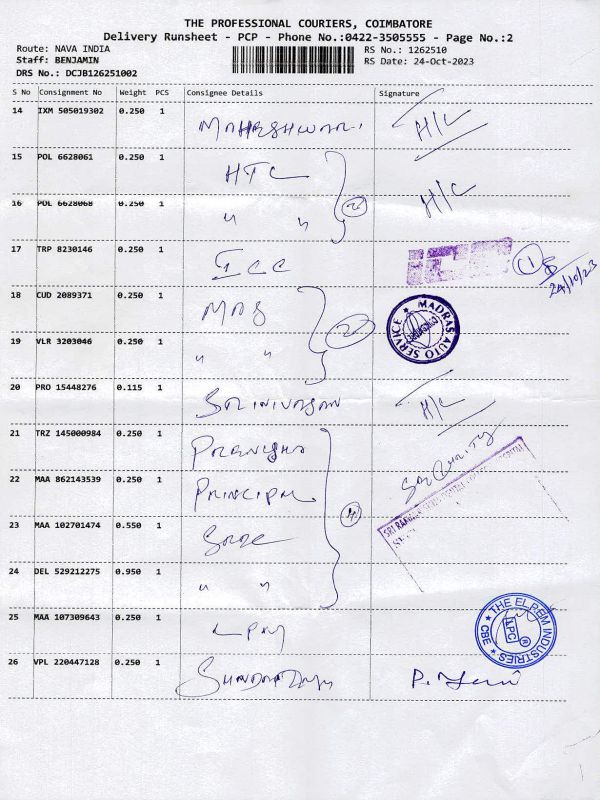 THE PROFESSIONAL COURIERS, COIMBATORE
Delivery Runsheet - PCP - Phone No.:0422-3505555 - Page No.:2
Route: NAVA INDIA
RS No.: 1262510
Staff: BENJAMIN
RS Date: 24-Oct-2023
DRS No.: DCJB126251002
S No Consignment No Weight PCS Consignee Details Signature
14 IXM 505019302 0.250 1 MAHESHWARI H/C
15 POL 6628061 0.250 1 HTC
16 POL 6628068 0.250 1 " " 2 H/C
17 TRP 8230146 0.250 1 ICC 1 24/10/23
18 CUD 2089371 0.250 1 MAS MADRAS AUTO SERVICE
19 VLR 3203046 0.250 1 " " 2
20 PRO 15448276 0.115 1 SRINIVASAN H/C
21 TRZ 145000984 0.250 1 SECURITY
22 MAA 862143539 0.250 1 PRINCIPAL
23 MAA 102701474 0.550 1 4
24 DEL 529212275 0.950 1 " "
25 MAA 107309643 0.250 1 LPM THE ELREM INDUSTRIES CBE
26 VPL 220447128 0.250 1